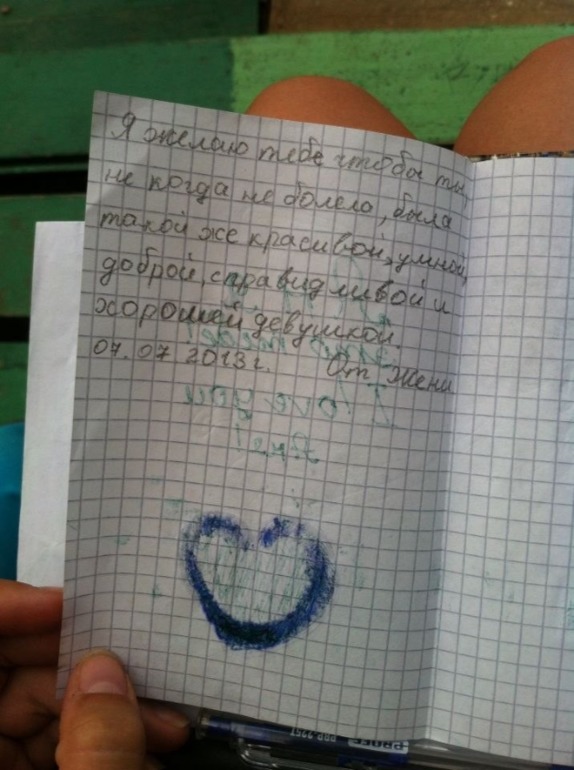 Я желаю тебе чтобы ты,
не когда не болело, была
такой же красивой, умной,
доброй, справидливой и
хорошей девушкой.
07. 07 2013 г. От Жени
I love you